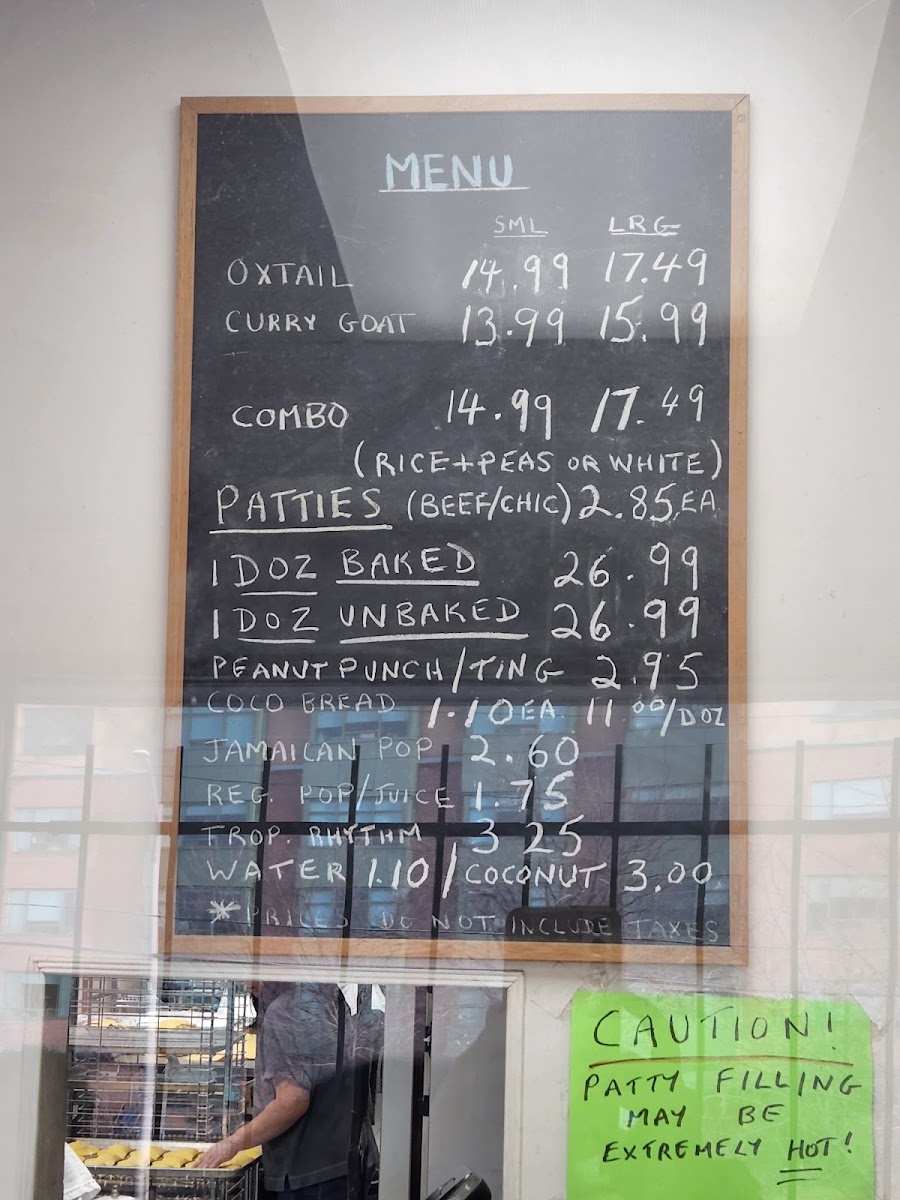 MENU
SML LRG
OXTAIL 14.99 17.49
CURRY GOAT 13.99 15.99
COMBO 14.99 17.49
(RICE+PEAS OR WHITE)
PATTIES (BEEF/CHIC) 2.85 EA
1 DOZ BAKED 26.99
1 DOZ UNBAKED 26.99
PEANUT PUNCH/TING 2.95
COCO BREAD 1.10 EA. 11.00/DOZ
JAMAICAN POP 2.60
REG. POP/JUICE 1.75
TROP. RHYTHM 3.25
WATER 1.10/COCONUT 3.00
* PRICES DO NOT INCLUDE TAXES
CAUTION!
PATTY FILLING
MAY BE
EXTREMELY HOT!